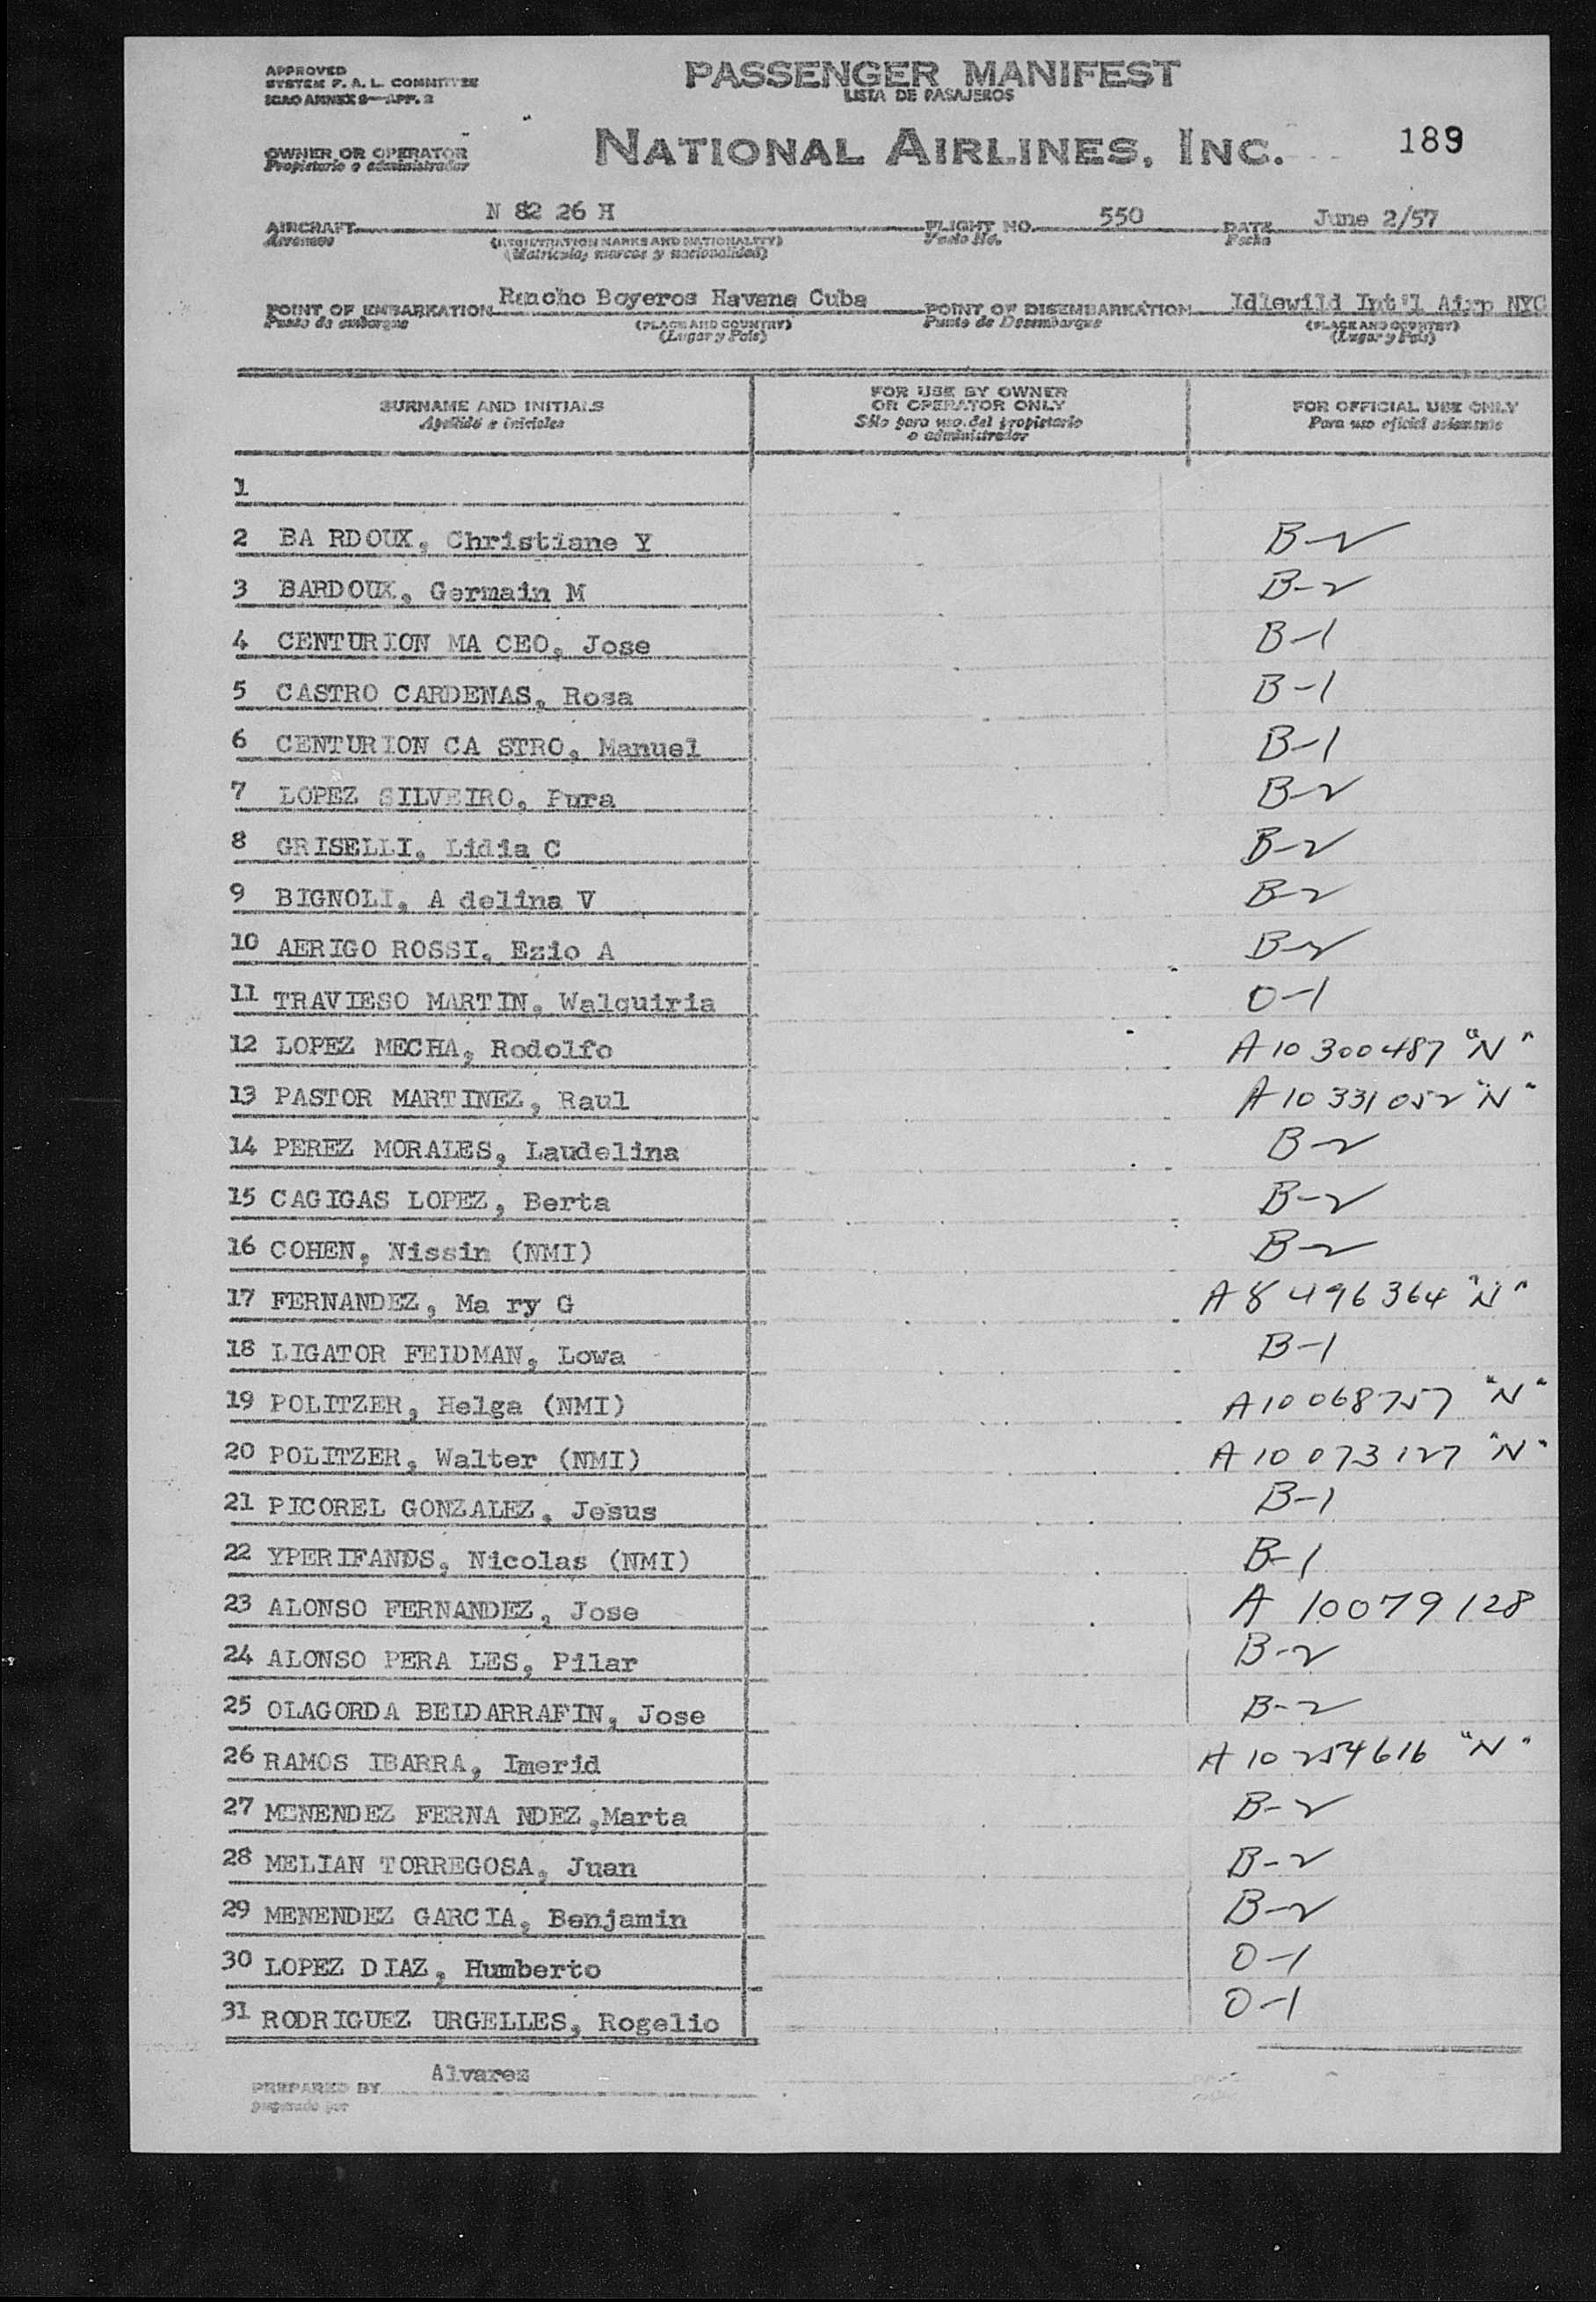 APPROVED
SYSTEM F. A. L. COMMITTEE
ICAO ANNEX 9—APP. 2
PASSENGER MANIFEST
LISTA DE PASAJEROS
OWNER OR OPERATOR
Propietario o administrador
NATIONAL AIRLINES, INC.
189
AIRCRAFT N 82 26 H FLIGHT NO. 550 DATE June 2/57
Aeronave (REGISTRATION MARKS AND NATIONALITY) Vuelo No. Fecha
(Matricula, marcas y nacionalidad)
POINT OF EMBARKATION Rancho Boyeros Havana Cuba POINT OF DISEMBARKATION Idlewild Int'l Airp NYC
Punto de embarque (PLACE AND COUNTRY) Punto de Desembarque (PLACE AND COUNTRY)
(Lugar y País) (Lugar y País)
SURNAME AND INITIALS
Apellido e iniciales
FOR USE BY OWNER
OR OPERATOR ONLY
Sólo para uso del propietario
o administrador
FOR OFFICIAL USE ONLY
Para uso oficial solamente
1
2 BA RDOUX, Christiane Y B-2
3 BARDOUX, Germain M B-2
4 CENTURION MA CEO, Jose B-1
5 CASTRO CARDENAS, Rosa B-1
6 CENTURION CA STRO, Manuel B-1
7 LOPEZ SILVEIRO, Pura B-2
8 GRISELLI, Lidia C B-2
9 BIGNOLI, A delina V B-2
10 AERIGO ROSSI, Ezio A B-2
11 TRAVIESO MARTIN, Walquiria O-1
12 LOPEZ MECHA, Rodolfo A 10 300487 "N"
13 PASTOR MARTINEZ, Raul A 10 331 052 "N"
14 PEREZ MORALES, Laudelina B-2
15 CAGIGAS LOPEZ, Berta B-2
16 COHEN, Nissin (NMI) B-2
17 FERNANDEZ, Ma ry G A 8 496 364 "N"
18 LIGATOR FEIDMAN, Lowa B-1
19 POLITZER, Helga (NMI) A 10 068757 "N"
20 POLITZER, Walter (NMI) A 10 073 127 "N"
21 PICOREL GONZALEZ, Jesus B-1
22 YPERIFANOS, Nicolas (NMI) B-1
23 ALONSO FERNANDEZ, Jose A 10079128
24 ALONSO PERA LES, Pilar B-2
25 OLAGORDA BEIDARRAFIN, Jose B-2
26 RAMOS IBARRA, Imerid A 10 254616 "N"
27 MENENDEZ FERNA NDEZ ,Marta B-2
28 MELIAN TORREGOSA, Juan B-2
29 MENENDEZ GARCIA, Benjamin B-2
30 LOPEZ DIAZ, Humberto O-1
31 RODRIGUEZ URGELLES, Rogelio O-1
PREPARED BY Alvarez
preparado por